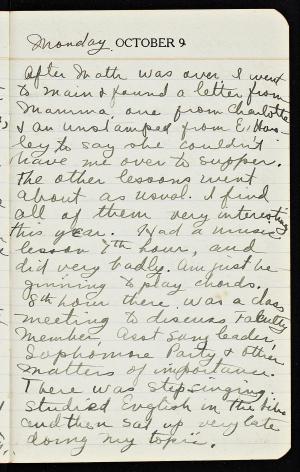 Monday, OCTOBER 9
After Math was over, I went
to main & found a letter from
Mamma, one from Charlotte
& an unstamped from E.
ley to say she couldn't
have me over to supper.
The other lessons went
about as usual. I find
all of them very interesting
this year. Had a music
lesson 7th hour, and
did very badly. Am just be-
ginning to play chords.
8th hour there was a class
meeting to discuss Faculty
Member, Asst Song leader,
Sophomore Party & other
matters of importance.
There was stepsinging.
Studied English in the Libe
and then sat up very late
doing my topic.